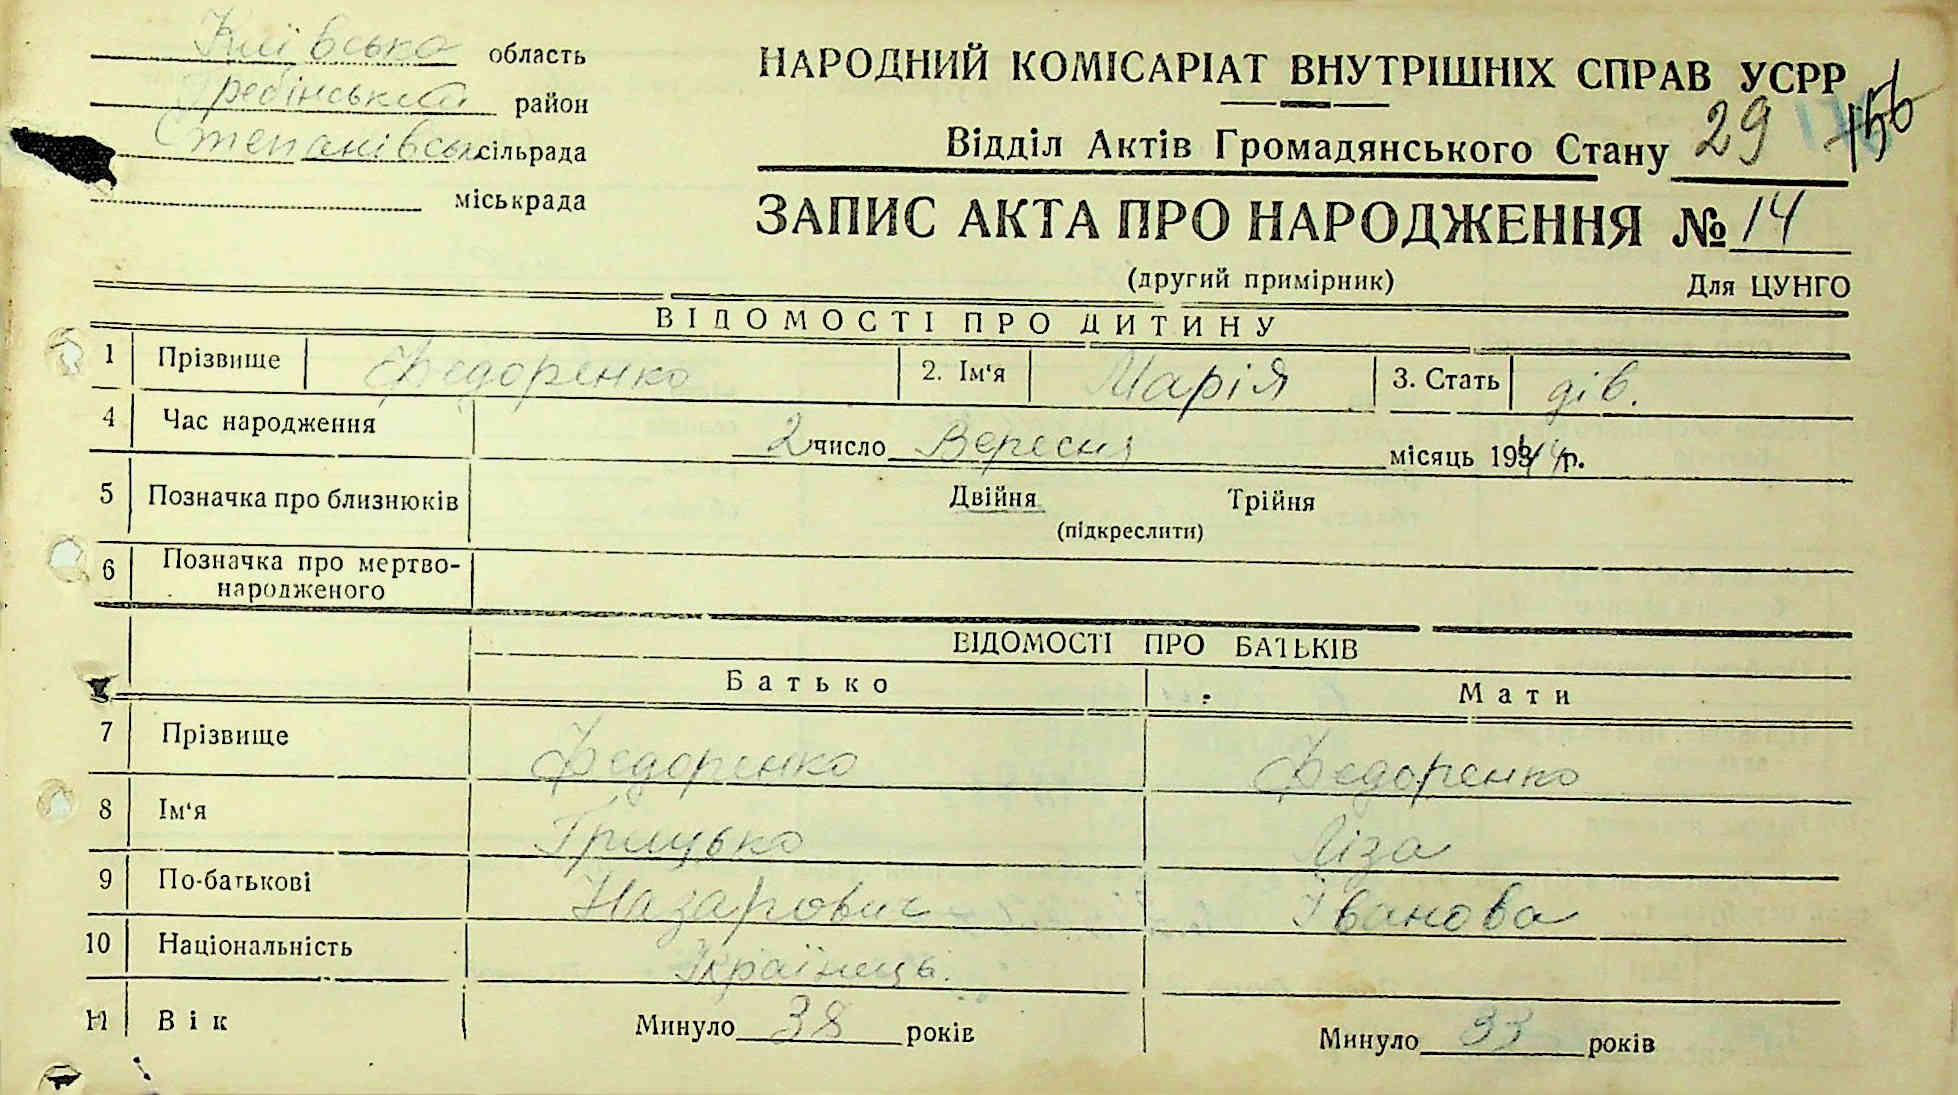 Київська область
Гребінський район
Степанівськ. сільрада
міськрада
НАРОДНИЙ КОМІСАРІАТ ВНУТРІШНІХ СПРАВ УСРР
Відділ Актів Громадянського Стану 29 156
ЗАПИС АКТА ПРО НАРОДЖЕННЯ № 14
(другий примірник) Для ЦУНГО
ВІДОМОСТІ ПРО ДИТИНУ
1 Прізвище Федоренко 2. Ім‘я Марія 3. Стать дів.
4 Час народження 2 число Вересня місяць 1944 р.
5 Позначка про близнюків Двійня Трійня
(підкреслити)
6 Позначка про мертво-
народженого
ВІДОМОСТІ ПРО БАТЬКІВ
Батько Мати
7 Прізвище Федоренко Федоренко
8 Ім‘я Грицько Ліза
9 По-батькові Назарович Іванова
10 Національність Українець.
11 Вік Минуло 38 років Минуло 33 років